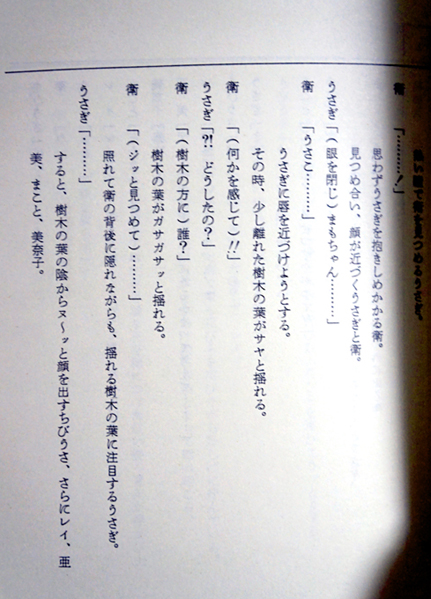 で衛を見つめるうさぎ。
衛　「………！」
思わずうさぎを抱きしめかかる衛。
見つめ合い、顔が近づくうさぎと衛。
うさぎ「（眼を閉じ）まもちゃん………」
衛　「うさこ………」
うさぎに唇を近づけようとする。
その時、少し離れた樹木の葉がサヤと揺れる。
衛　「（何かを感じて）!!」
うさぎ「?!　どうしたの？」
衛　「（樹木の方に）誰？」
樹木の葉がガサガサッと揺れる。
衛　「（ジッと見つめて）………」
照れて衛の背後に隠れながらも、揺れる樹木の葉に注目するうさぎ。
うさぎ「………」
すると、樹木の葉の陰からヌ～ッと顔を出すちびうさ、さらにレイ、亜
美、まこと、美奈子。